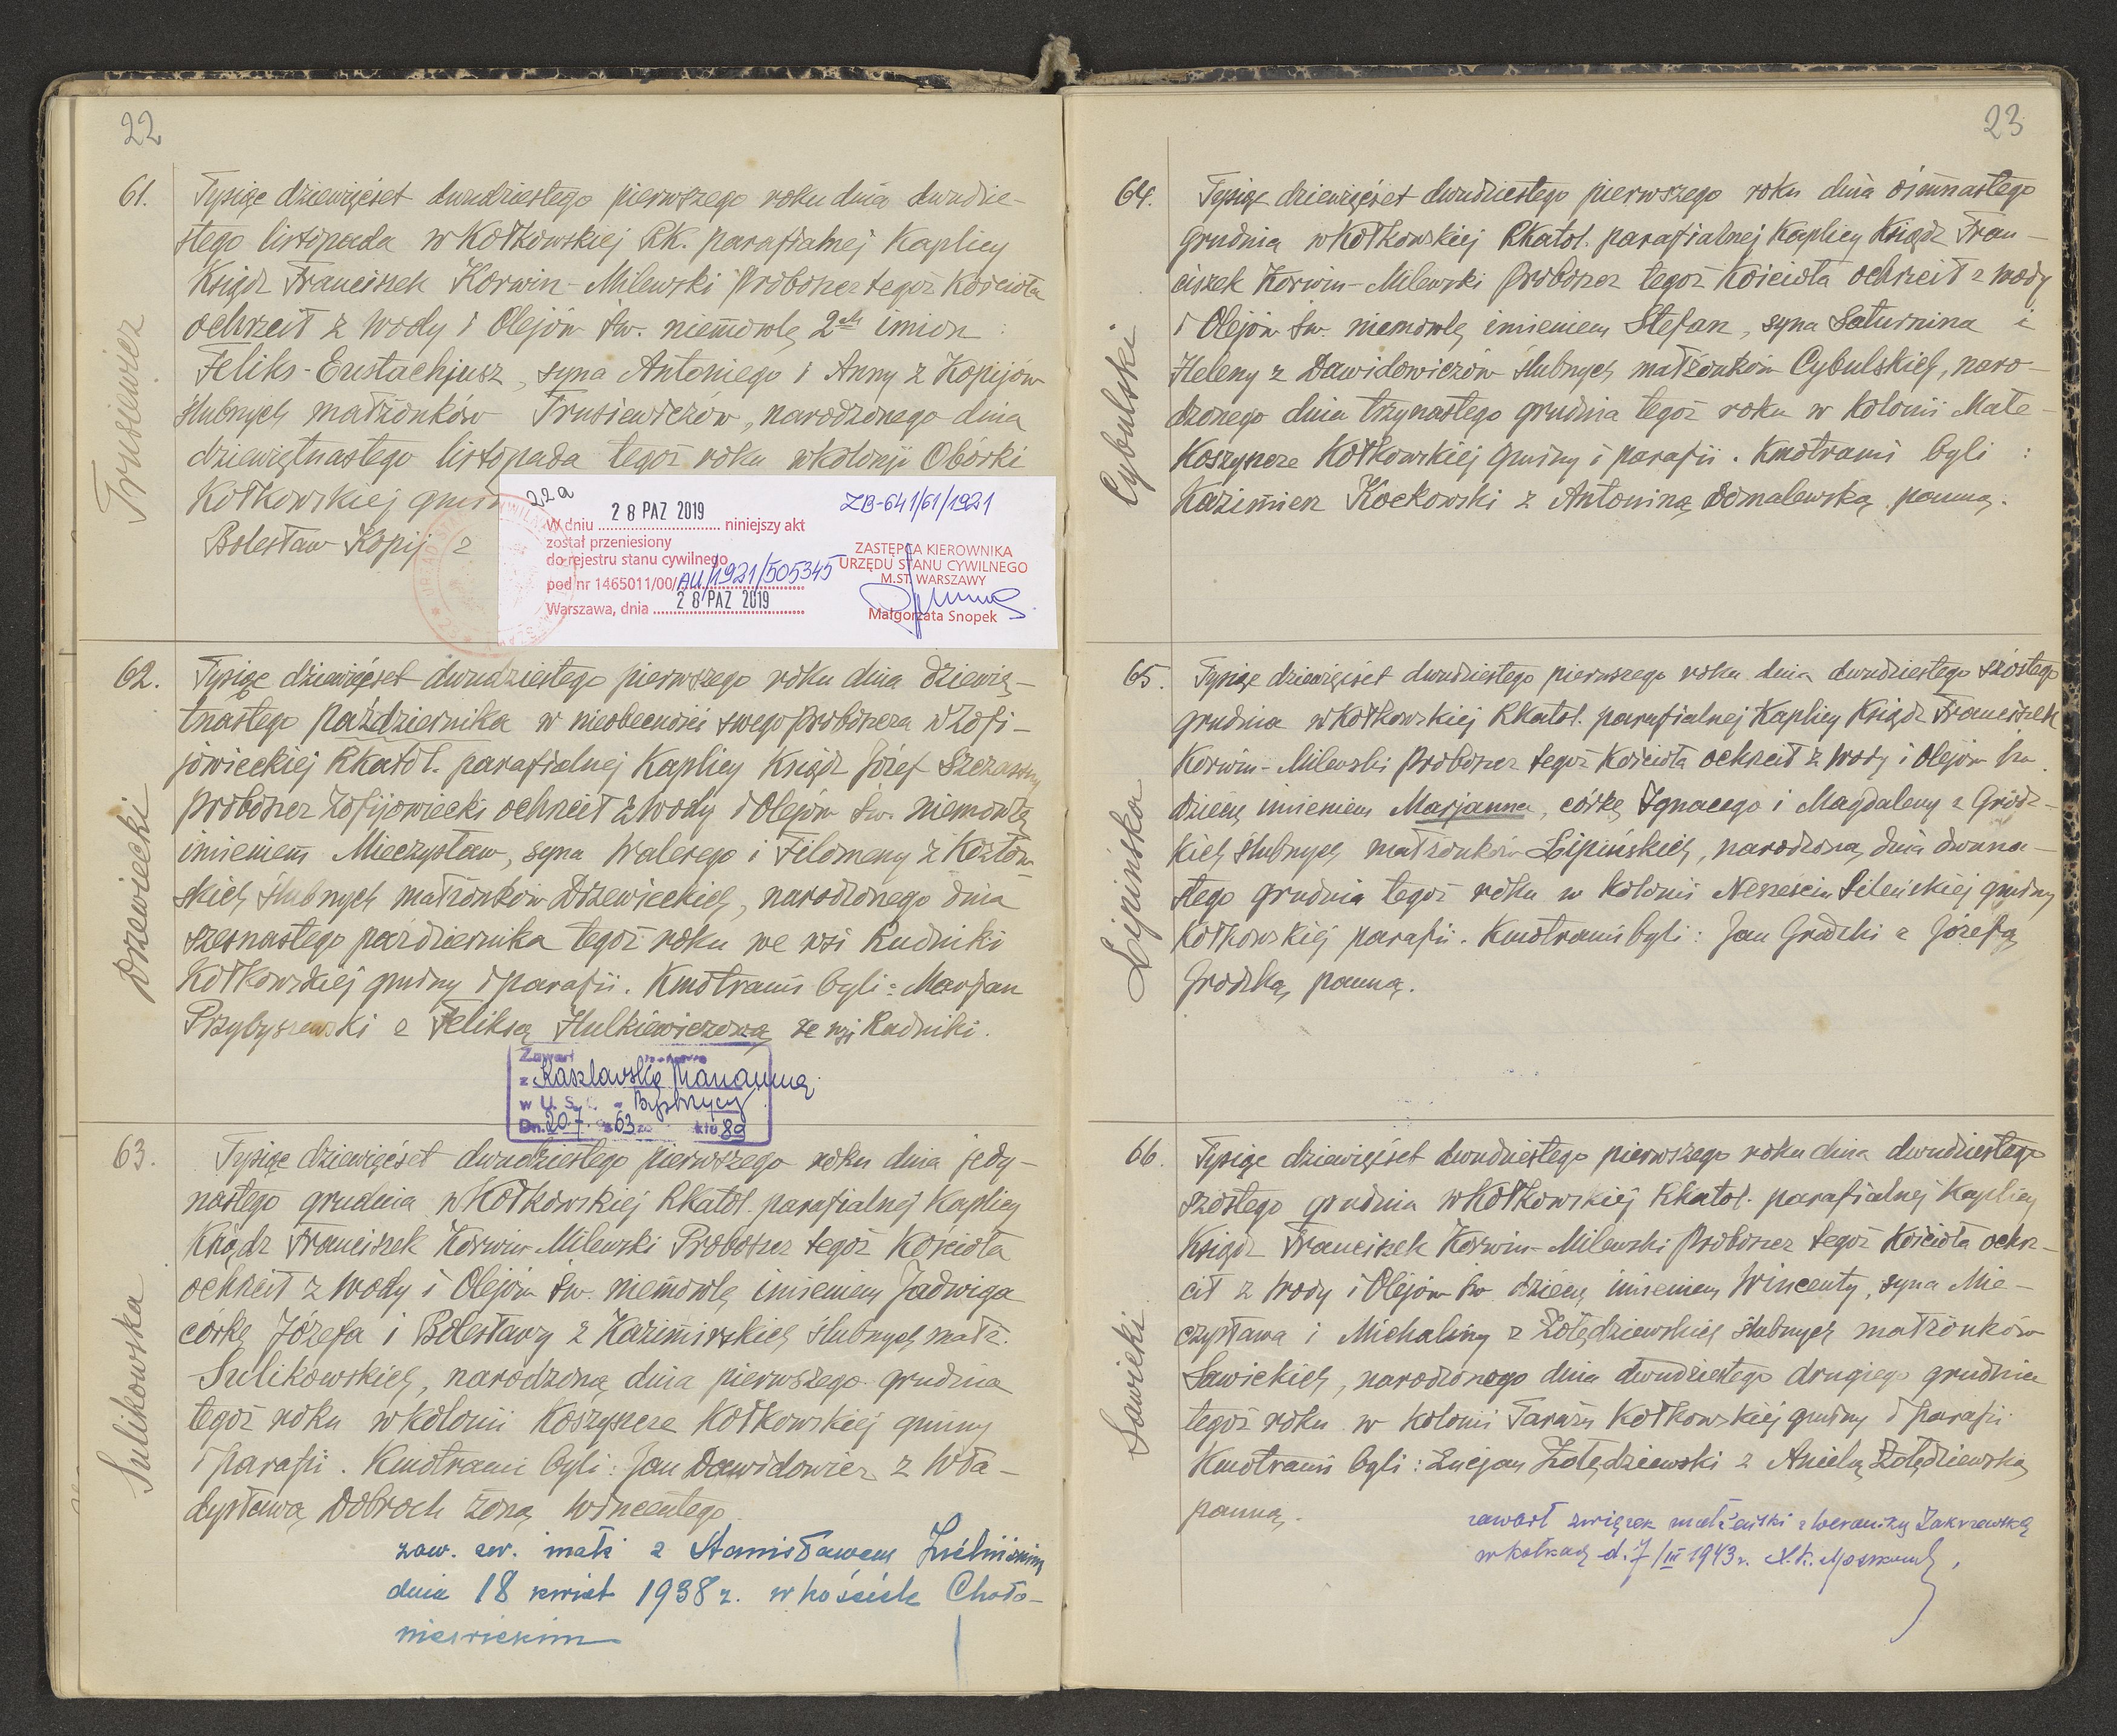 22
61.
Trusiewicz
Tysiąc dziewięćset dwudziestego pierwszego roku dnia dwudzie-
stego listopada w Kołkowskiej RK. parafialnej Kaplicy
Ksiądz Franciszek Korwin-Milewski Proboszcz tegoż Kościoła
ochrzcił z wody i Olejów św. niemowlę 2ch imion :
Feliks-Eustachjusz, syna Antoniego i Anny z Kopijów
ślubnych małżonków Trusiewiczów, narodzonego dnia
dziewiętnastego listopada tegoż roku w kolonji Obórki
Kołkowskiej gmin
Bolesław Kopij z
22a
ZB-641/61/1921
W dniu 28 PAZ 2019 niniejszy akt
został przeniesiony
do rejestru stanu cywilnego
pod nr 1465011/00/AU/1921/505345
Warszawa, dnia 28 PAZ 2019
ZASTĘPCA KIEROWNIKA
URZĘDU STANU CYWILNEGO
M.ST. WARSZAWY
Małgorzata Snopek
62.
Drzewiecki
Tysiąc dziewięćset dwudziestego pierwszego roku dnia dziewię-
tnastego października w nieobecności swego proboszcza w Zofi-
jówieckiej RKatol. parafialnej Kaplicy Ksiądz Józef Szczasny
proboszcz Zofijowiecki ochrzcił z wody i Olejów św. niemowlę
imieniem Mieczysław, syna Walerego i Filomeny z Kozłow-
skich ślubnych małżonków Drzewieckich, narodzonego dnia
szesnastego października tegoż roku we wsi Rudniki
Kołkowskiej gminy i parafii. Kmotrami byli: Marjan
Przybyszewski z Feliksą Hulkiewiczową ze wsi Rudniki.
Zawarł
z Kaszlawską Marianną
w U. S. C. w Bystrzycy
Dn. 20.7. 63 89
63.
Sulikowska
Tysiąc dziewięćset dwudziestego pierwszego roku dnia jedy-
nastego grudnia w Kołkowskiej RKatol. parafialnej Kaplicy
Ksiądz Franciszek Korwin-Milewski Proboszcz tegoż Kościoła
ochrzcił z wody i Olejów św. niemowlę imieniem Jadwiga
córkę Józefa i Bolesławy z Kazimirskich ślubnych małż.
Sulikowskich, narodzoną dnia pierwszego grudnia
tegoż roku w kolonii Koszyszcze Kołkowskiej gminy
i parafii. Kmotrami byli: Jan Dawidowicz z Wła-
dysławą Dobroch żoną Wincentego.
zaw. zw. małż z Stanisławem
dnia 18 kwiet 1938 r. w kościele Choło-
niewickim
23
64.
Cybulski
Tysiąc dziewięćset dwudziestego pierwszego roku dnia ośmnastego
Grudnia w Kołkowskiej RKatol. parafialnej Kaplicy Ksiądz Fran-
ciszek Korwin-Milewski Proboszcz tegoż Kościoła ochrzcił z wody
i Olejów św. niemowlę imieniem Stefan, syna Saturnina i
Heleny z Dawidowiczów ślubnych małżonków Cybulskich, naro-
dzonego dnia trzynastego grudnia tegoż roku w kolonii Małe-
Koszyszcze Kołkowskiej gminy i parafii. Kmotrami byli :
Kazimierz Kockowski z Antoniną Domalewską panną.
65.
Lipińska
Tysiąc dziewięćset dwudziestego pierwszego roku dnia dwudziestego szóstego
grudnia w Kołkowskiej RKatol. parafialnej Kaplicy Ksiądz Franciszek
Korwin-Milewski Proboszcz tegoż Kościoła ochrzcił z wody i Olejów św.
dziecię imieniem Marjanna, córkę Ignacego i Magdaleny z Gródz-
kich ślubnych małżonków Lipińskich, narodzoną dnia dwuna-
stego grudnia tegoż roku w kolonii Sileńskiej gminy
Kołkowskiej parafii. Kmotrami byli: Jan Gródzki z Józefą
Grodzką panną.
66.
Sawicki
Tysiąc dziewięćset dwudziestego pierwszego roku dnia dwudziestego
szóstego grudnia w Kołkowskiej RKatol. parafialnej Kaplicy
Ksiądz Franciszek Korwin-Milewski Proboszcz tegoż Kościoła ochrz-
cił z wody i Olejów św. dziecię imieniem Wincenty, syna Mie-
czysława i Michaliny z Żołędziewskich ślubnych małżonków
Sawickich, narodzonego dnia dwudziestego drugiego grudnia
tegoż roku w kolonii Taraż Kołkowskiej gminy i parafii.
Kmotrami byli: Lucjan Żołędziewski z Anielą Żołędziewską
panną.
zawarł związek małżeński z Weroniką Zakrzewską
w Kołkach d. 7/III 1943 r.